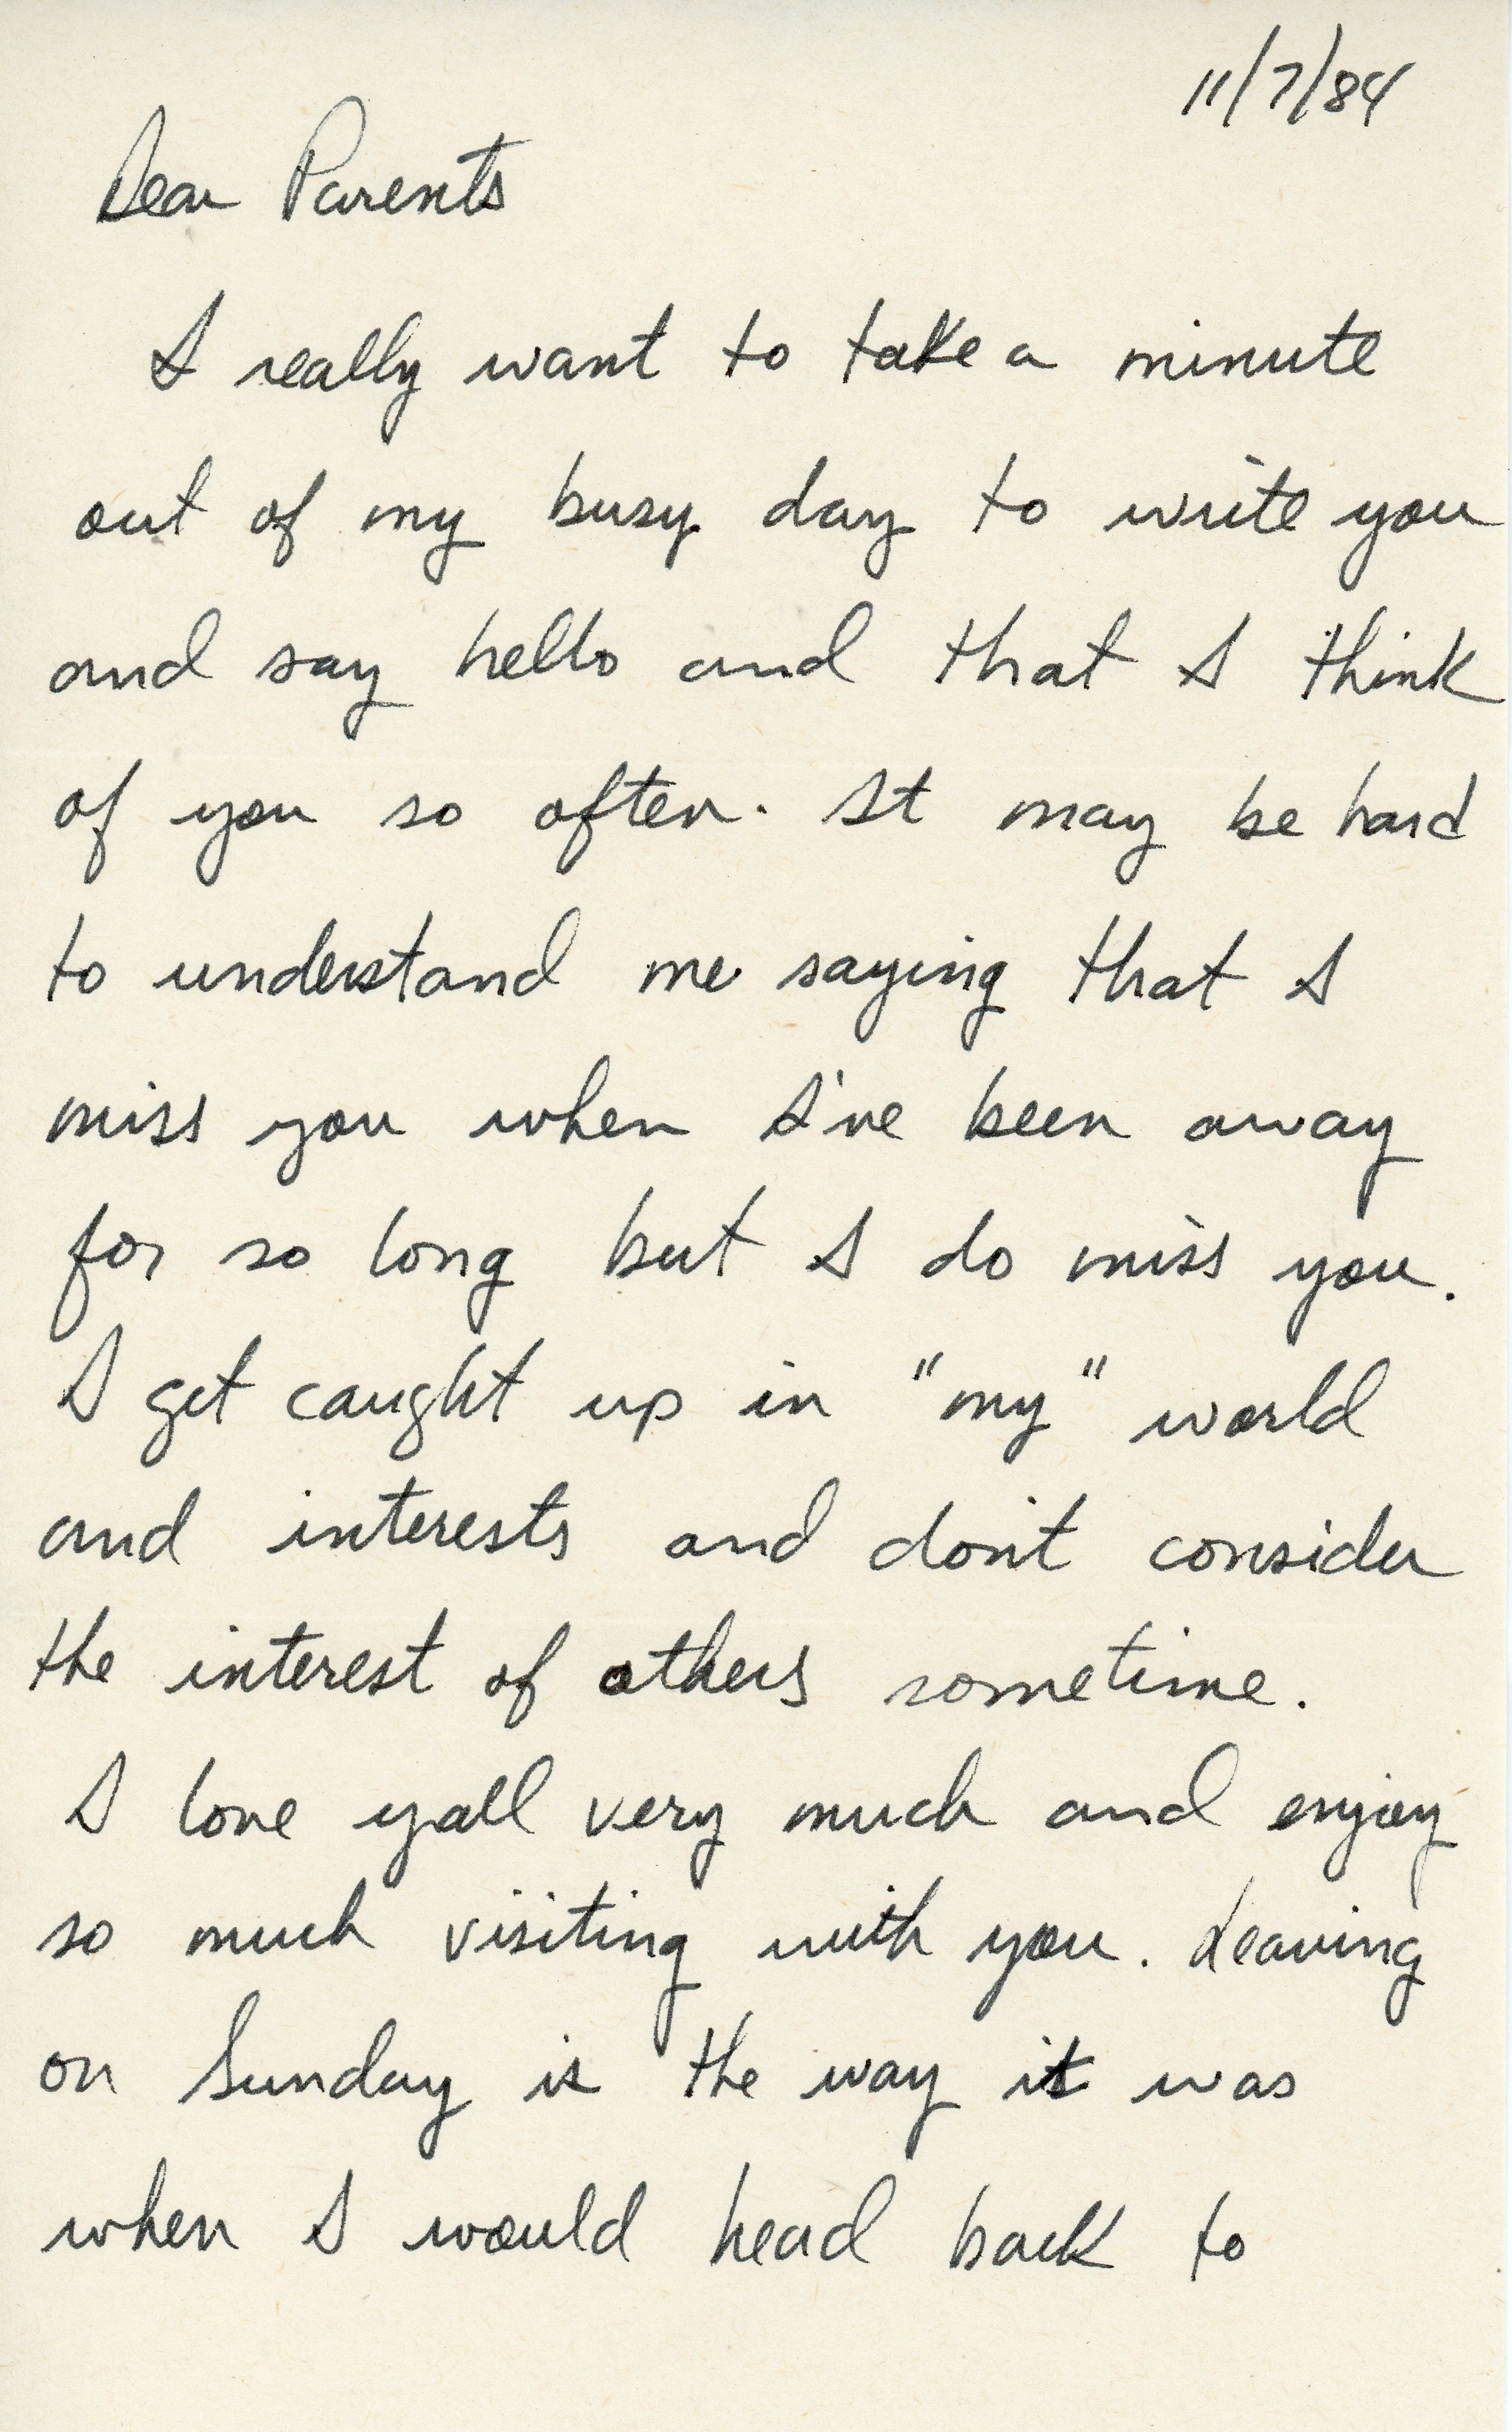 11/7/84
Dear Parents
I really want to take a minute
out of my busy day to write you
and say hello and that I think
of you so often. It may be hard
to understand me saying that I
miss you when I've been away
for so long but I do miss you.
I get caught up in "my" world
and interests and don't consider
the interest of others sometime.
I love yall very much and enjoy
so much visiting with you. Leaving
on Sunday is the way it was
when I would head back to